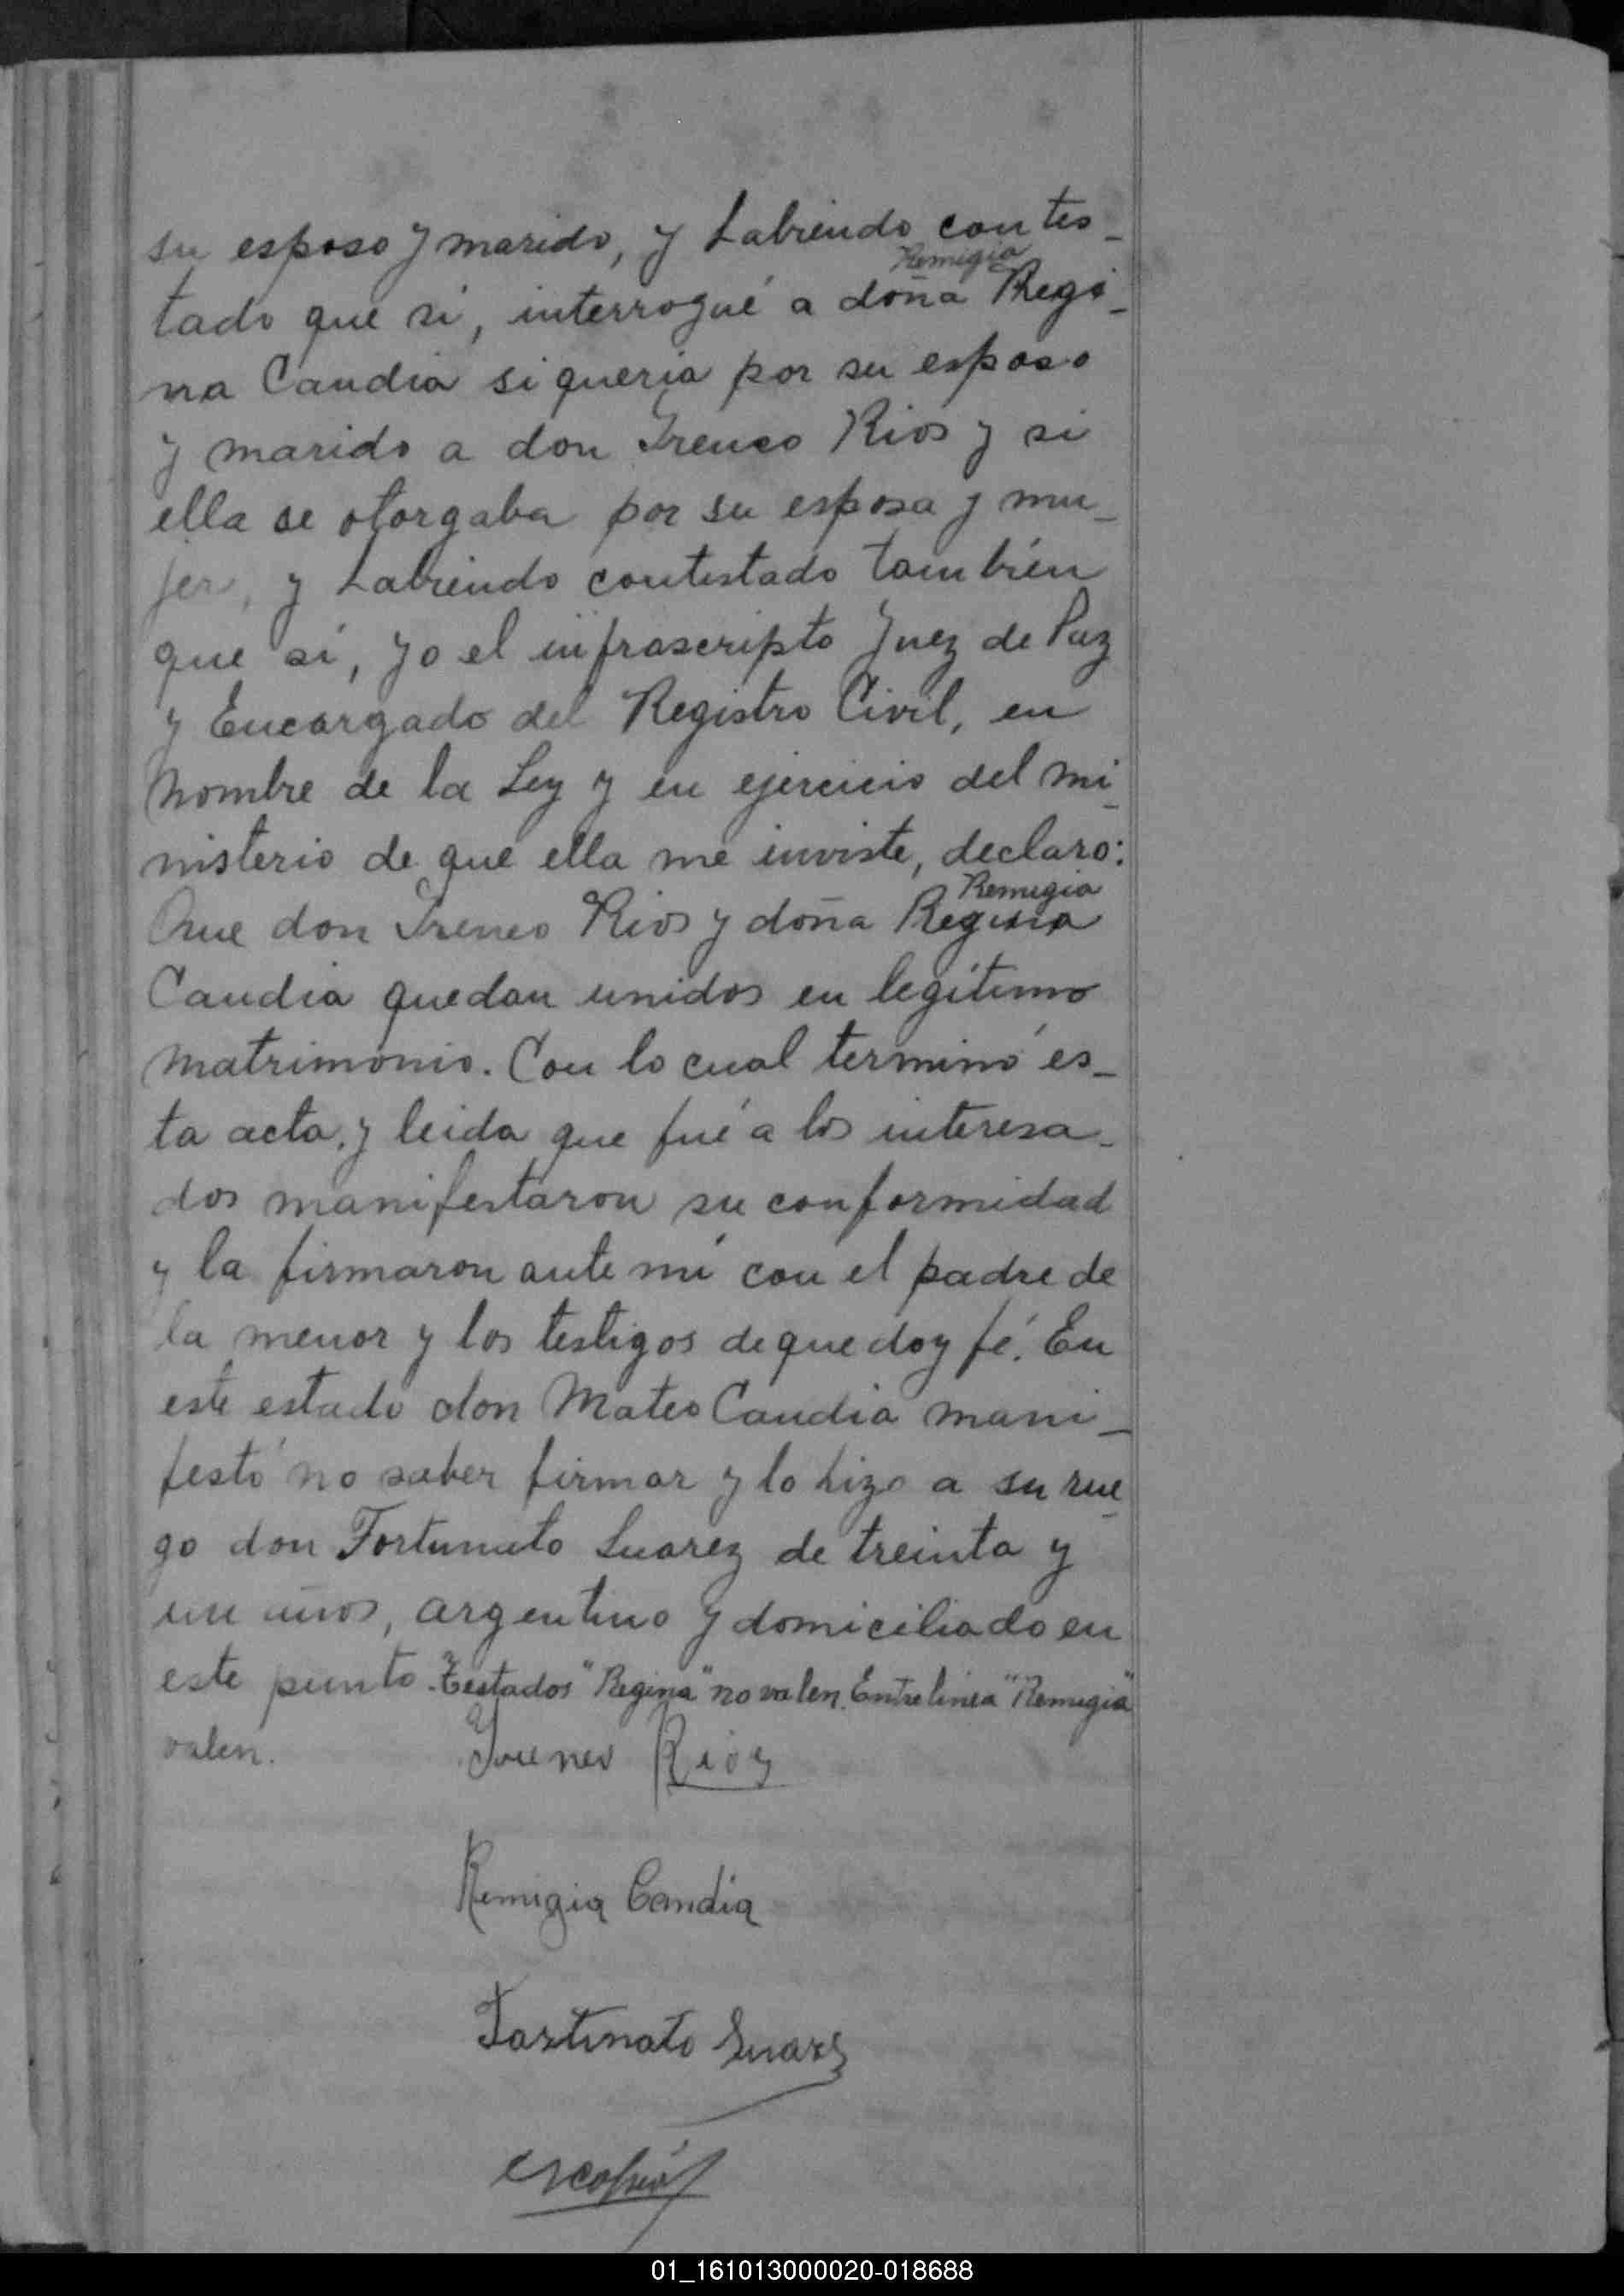 su esposo y marido, y habiendo contes_
Remigia
tado que si, interrogué a doña Regi_
na Candia si queria por su esposo
y marido a don Ireneo Rios y si
ella se otorgaba por su esposa y mu_
jer, y habiendo contestado también
que sí, yo el infrascripto Juez de Paz
y Encargado del Registro Civil, en
nombre de la Ley y en ejercicio del mi_
nisterio de que ella me inviste, declaro:
Remigia
Que don Ireneo Rios y doña Regina
Candia quedan unidos en legítimo
matrimonio. Con lo cual terminó es_
ta acta, y leida que fué a los interesa_
dos manifestaron su conformidad
y la firmaron ante mí con el padre de
la menor y los testigos de que doy fé. En
este estado don Mateo Candia mani_
festó no saber firmar y lo hizo a su rue_
go don Fortunato Suarez de treinta y
un años, argentino y domiciliado en
este punto. Testados "Regina" no valen. Entrelinea "Remigia"
valen.
Ireneo Rios
Remigia Candia
Fortunato Suarez
01_161013000020-018688